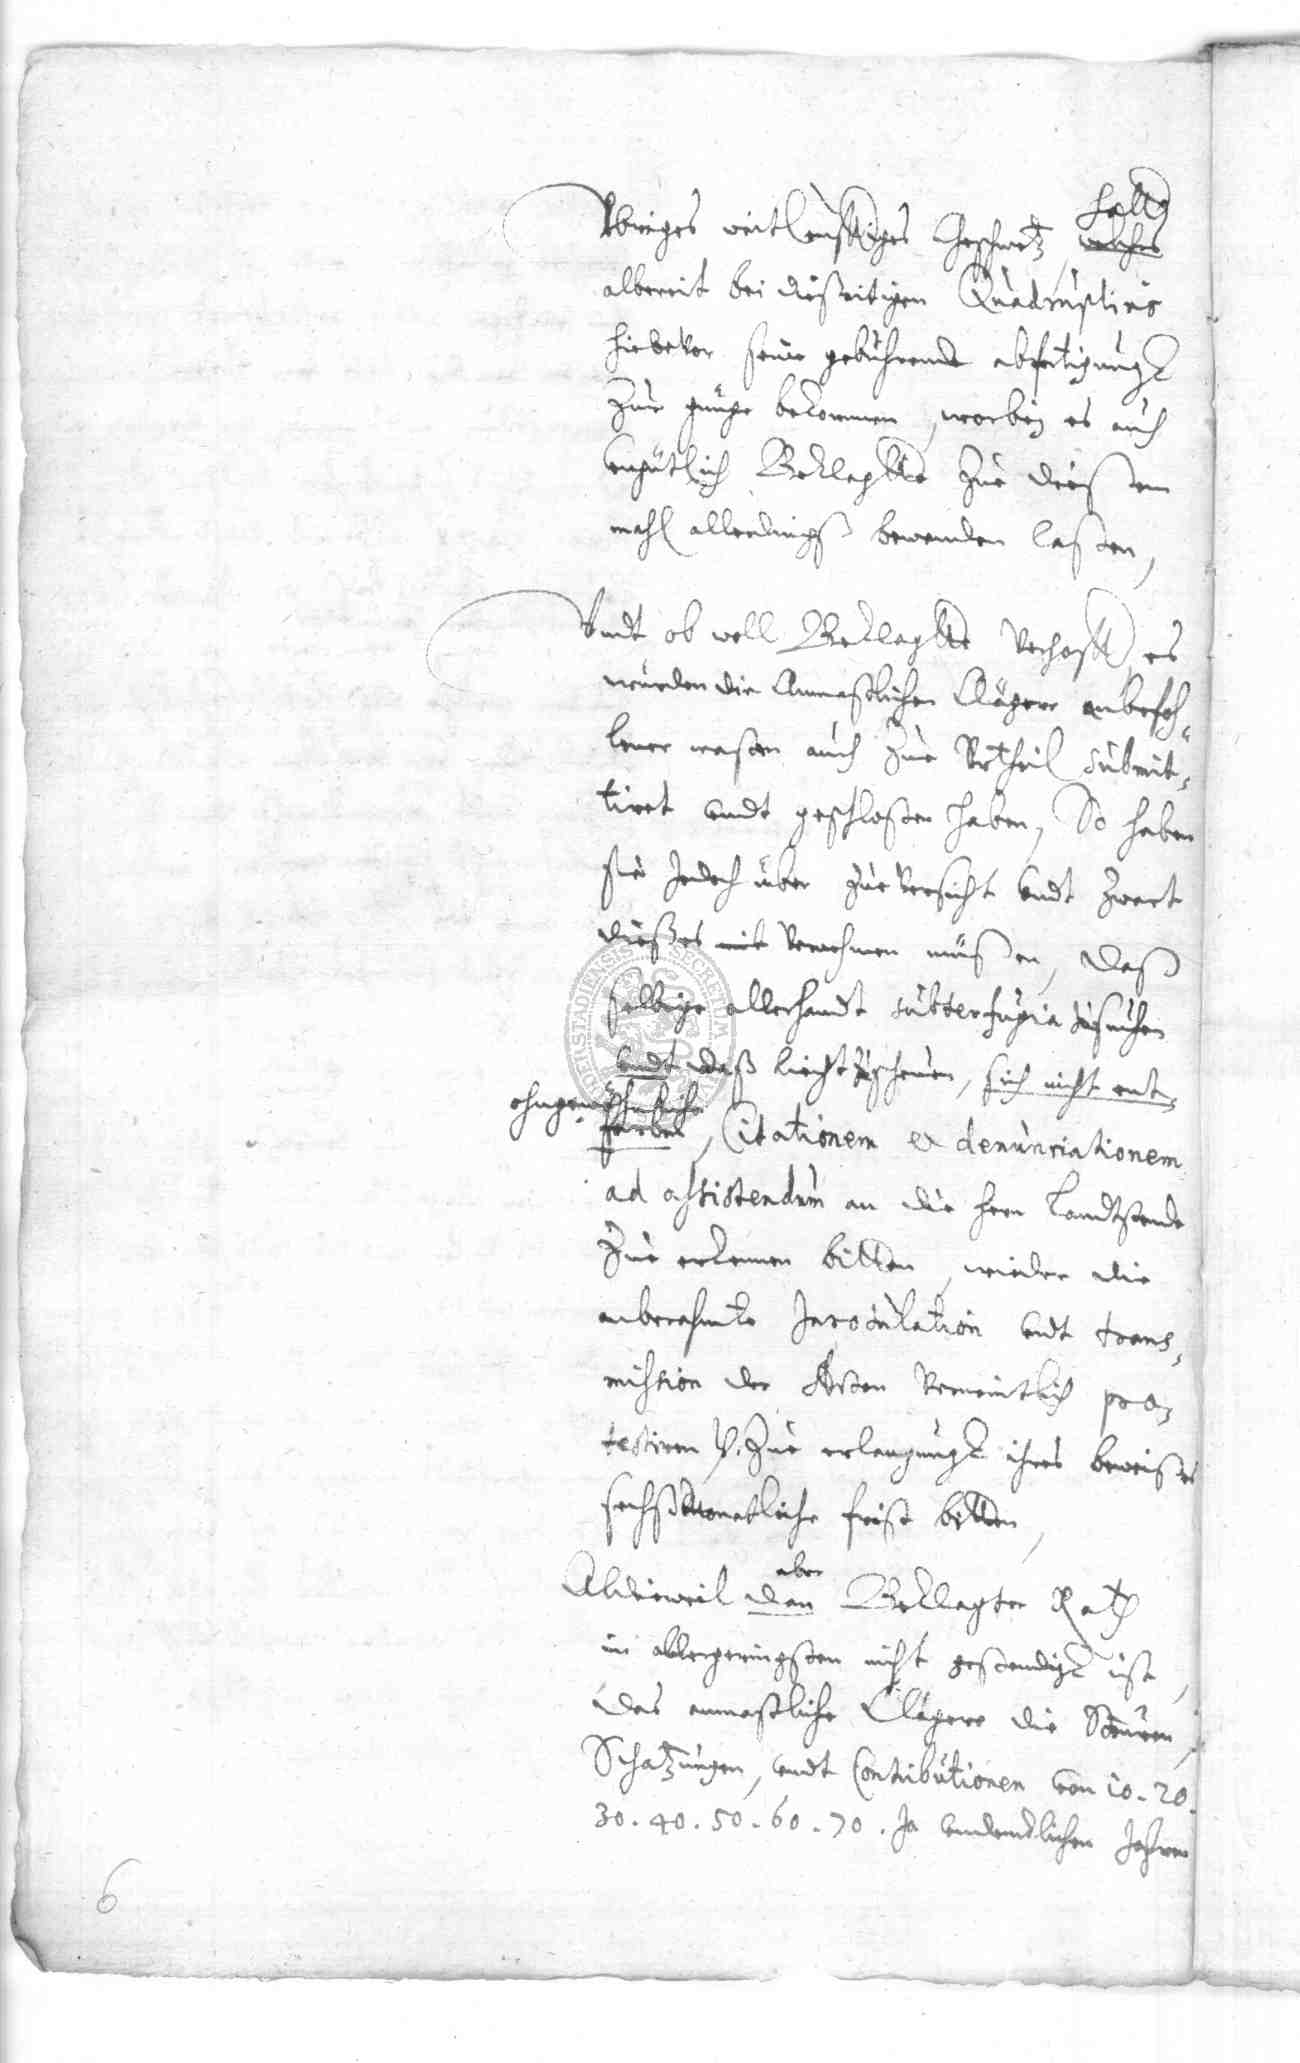 hatt
Vbriges weitleufftiges Geschwetz, welches
albereit bei dießeitigen Quadruplicis
hiebevor seine gebührende abfertigungk
Zur gnüge bekommen, worbey es auch
entgütlich Beklagtte Zue dießem
mahl allerdingß bewenden laßen,
Vndt ob woll Beklagtte Verhofft, es
würden die Anmaßlichen Clägere anbefoh¬
lener maßen auch Zue Vrtheil submit¬
tiret vndt geschloßen haben, So haben
sie Jedoch über Zuversicht vndt Zwart
dießes mit Vernehmen müßen, daß
selbige allerhandt subterfugia suchen
vndt daß liecht zuscheuen, sich nicht ent¬
ohngewöhnliche
farbet, Citationem et denunciationem
ad assistendum an die Herrn Landtstende
Zue erkennen bitten, wieder die
anberahmte Inrotulation vndt trans¬
mission der Acten Vermeintlich pro¬
testiren v. Zue erlangungk ihres beweißes
sechßMonatliche frist bitten,
aber
Aldieweil dan Beklagter Rath
im allergeringsten nicht gestendigk ist,
Das anmaßliche Clägere die Steuren,
Schatzungen, vndt Contributionen von 10. 20.
30. 40. 50. 60. 70. Ja vndencklichen Jahren
6
SECRETUM